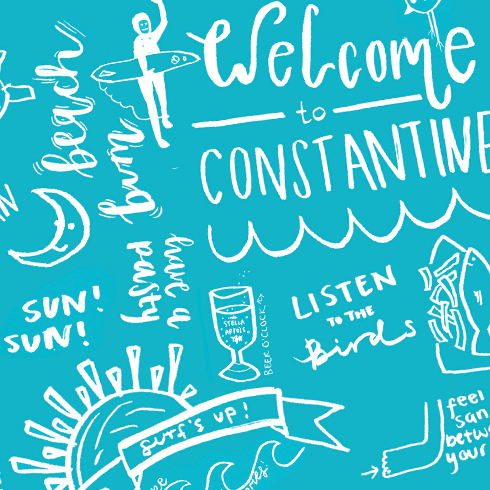 Welcome
to
CONSTANTINE
beach
bum
have a
pasty
SUN!
SUN!
STELLA
ARTOIS
BEER O'CLOCK
LISTEN
TO THE
Birds
surf's up!
feel
San
betw
your